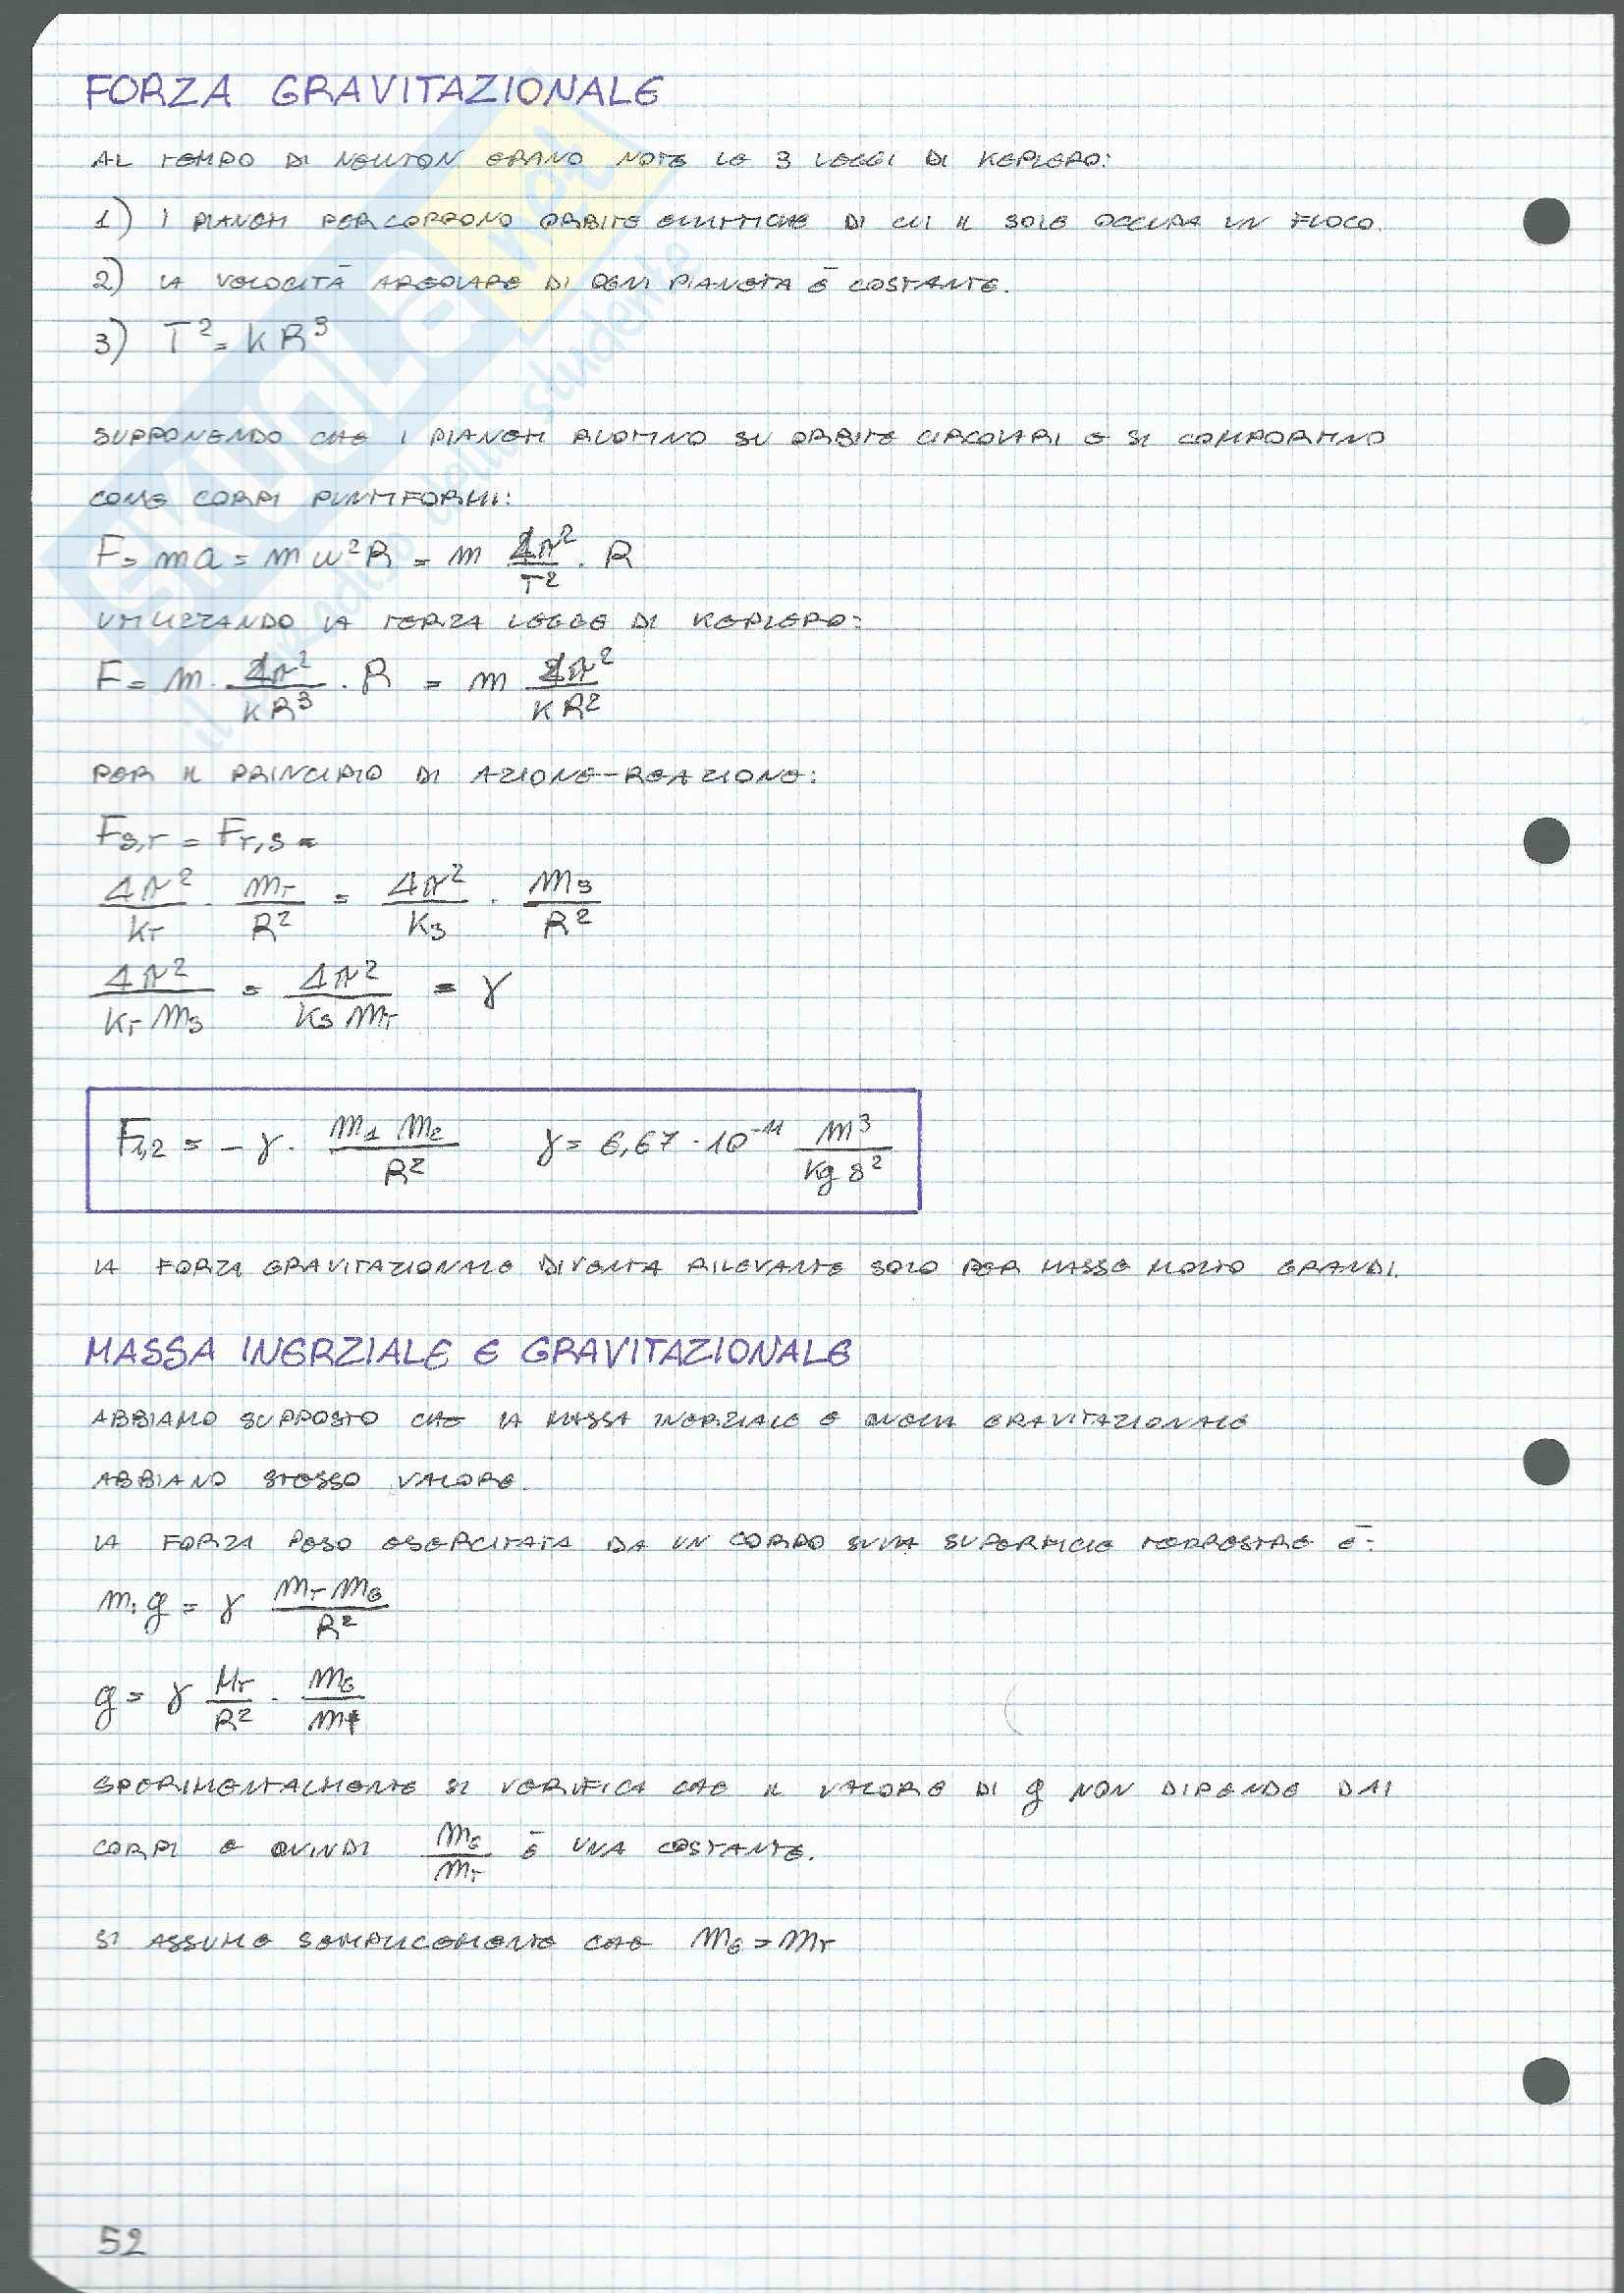 FORZA GRAVITAZIONALE
AL TEMPO DI NEWTON ERANO NOTE LE 3 LEGGI DI KEPLERO:
1) I PIANETI PERCORRONO ORBITE ELLITTICHE DI CUI IL SOLE OCCUPA UN FUOCO.
2) LA VELOCITÀ AREOLARE DI OGNI PIANETA È COSTANTE.
3) T² = KR³
SUPPONENDO CHE I PIANETI RUOTINO SU ORBITE CIRCOLARI E SI COMPORTINO
COME CORPI PUNTIFORMI:
F = ma = m ω²R = m 4π²/T² · R
UTILIZZANDO LA TERZA LEGGE DI KEPLERO:
F = m · 4π²/KR³ · R = m 4π²/KR²
PER IL PRINCIPIO DI AZIONE-REAZIONE:
F_S,T = F_T,S =
4π²/K_T · m_T/R² = 4π²/K_S · m_S/R²
4π²/(K_T m_S) = 4π²/(K_S m_T) = γ
F_1,2 = - γ · m_1 m_2/R² γ = 6,67 · 10⁻¹¹ m³/(kg s²)
LA FORZA GRAVITAZIONALE DIVENTA RILEVANTE SOLO PER MASSE MOLTO GRANDI.
MASSA INERZIALE E GRAVITAZIONALE
ABBIAMO SUPPOSTO CHE LA MASSA INERZIALE E QUELLA GRAVITAZIONALE
ABBIANO STESSO VALORE.
LA FORZA PESO ESERCITATA DA UN CORPO SULLA SUPERFICIE TERRESTRE È:
m_I g = γ m_T m_G/R²
g = γ M_T/R² · m_G/m_I
SPERIMENTALMENTE SI VERIFICA CHE IL VALORE DI g NON DIPENDE DAI
CORPI E QUINDI m_G/m_I È UNA COSTANTE.
SI ASSUME SEMPLICEMENTE CHE m_G = m_I
52